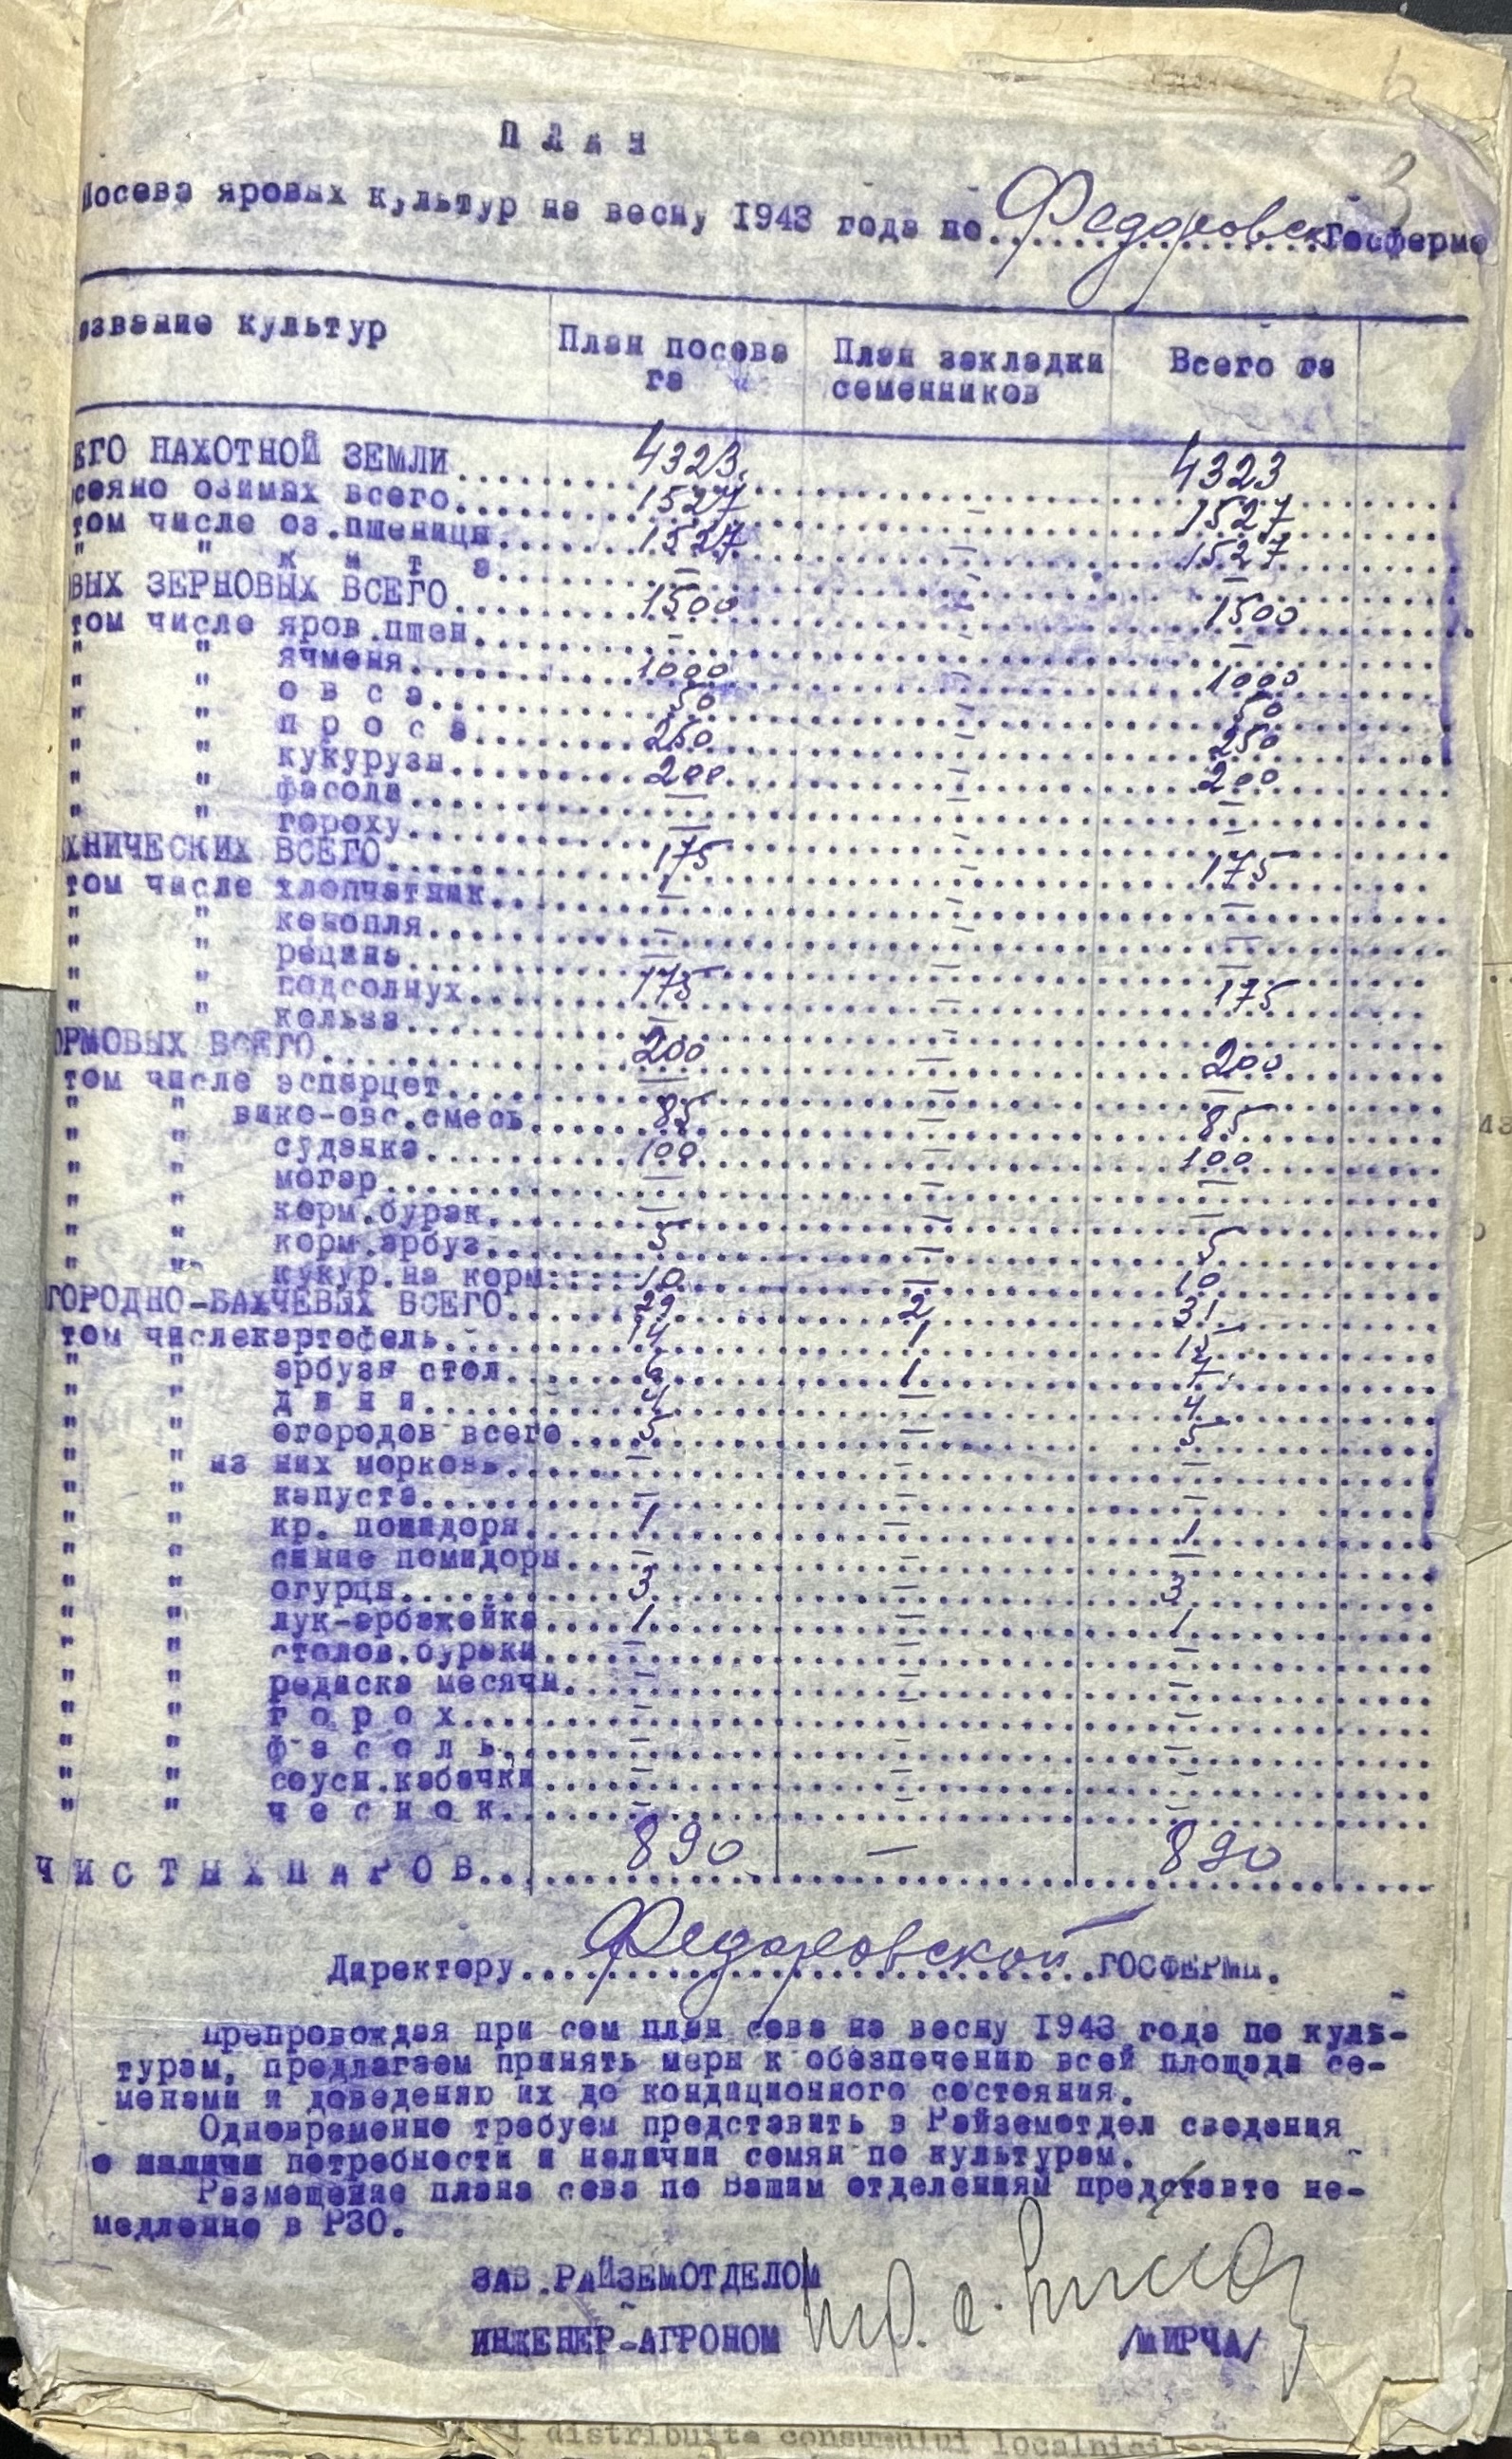 П Л А Н
Посева яровых культур на весну 1943 года по Федоровск. Госферме
азвание культур План посева га План закладки семенников Всего га
ЕГО ПАХОТНОЙ ЗЕМЛИ 4323 4323
сеяно озимых всего 1527 - 1527
том числе оз.пшеницы 1527 - 1527
" " ж и т а - - -
ВЫХ ЗЕРНОВЫХ ВСЕГО 1500 - 1500
том числе яров.пшен. - - -
" " ячменя 1000 - 1000
" " о в с а 50 - 50
" " п р о с а 250 - 250
" " кукурузы 200 - 200
" " фасоля - - -
" " гороху - - -
ХНИЧЕСКИХ ВСЕГО 175 - 175
том числе хлопчатник - - -
" " конопля - - -
" " рецина - - -
" " подсолнух 175 - 175
" " кольза - - -
ОРМОВЫХ ВСЕГО 200 - 200
том числе эспарцет - - -
" " вико-овс.смесь 85 - 85
" " суданка 100 - 100
" " могар - - -
" " корм.бурак - - -
" " корм.арбуз 5 - 5
" " кукур.на корм 10 - 10
ГОРОДНО-БАХЧЕВЫХ ВСЕГО 29 2 31
том числекартофель 14 1 15
" " арбузы стол. 6 1 7
" " д ы н и 4 - 4
" " огородов всего 5 - 5
" " из них морковь - - -
" " капуста - - -
" " кр. помидоры 1 - 1
" " синие помидоры - - -
" " огурцы 3 - 3
" " лук-арбажейка 1 - 1
" " столов.бураки - - -
" " редиска месячн. - - -
" " г о р о х - - -
" " ф а с о л ь - - -
" " соусн.кабачки - - -
" " ч е с н о к - - -
Ч И С Т Ы Х П А Р О В 890 - 890
Даректору Федоровской ГОСФЕРМЫ.
Препровождая при сем план сева на весну 1943 года по куль-
турам, предлагаем принять меры к обезпечению всей площади се-
менами и доведению их до кондиционного состояния.
Одновременно требуем представить в Райземотдел сведения
о наличи потребности и наличии семян по культурам.
Размещение плана сева по Вашим отделениям представте не-
медленно в РЗО.
ЗАВ.РАЙЗЕМОТДЕЛОМ
ИНЖЕНЕР-АГРОНОМ /МИРЧА/
distribuite consumului